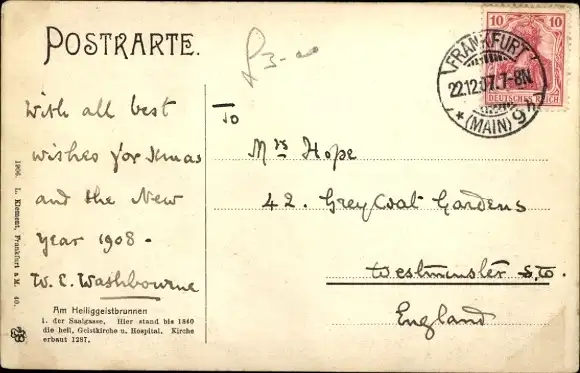 POSTKARTE.
10 10
DEUTSCHES REICH
FRANKFURT
22.12.07. 7-8N.
* (MAIN) 9
With all best
wishes for Xmas
and the New
Year 1908 -
W. E. Washbourne
To
Mrs Hope
42. Grey Coat Gardens
Westminster S.W.
England
Am Heiliggeistbrunnen
i. der Saalgasse. Hier stand bis 1840
die heil. Geistkirche u. Hospital. Kirche
erbaut 1287.
1906. L. Klement, Frankfurt a. M. 40.